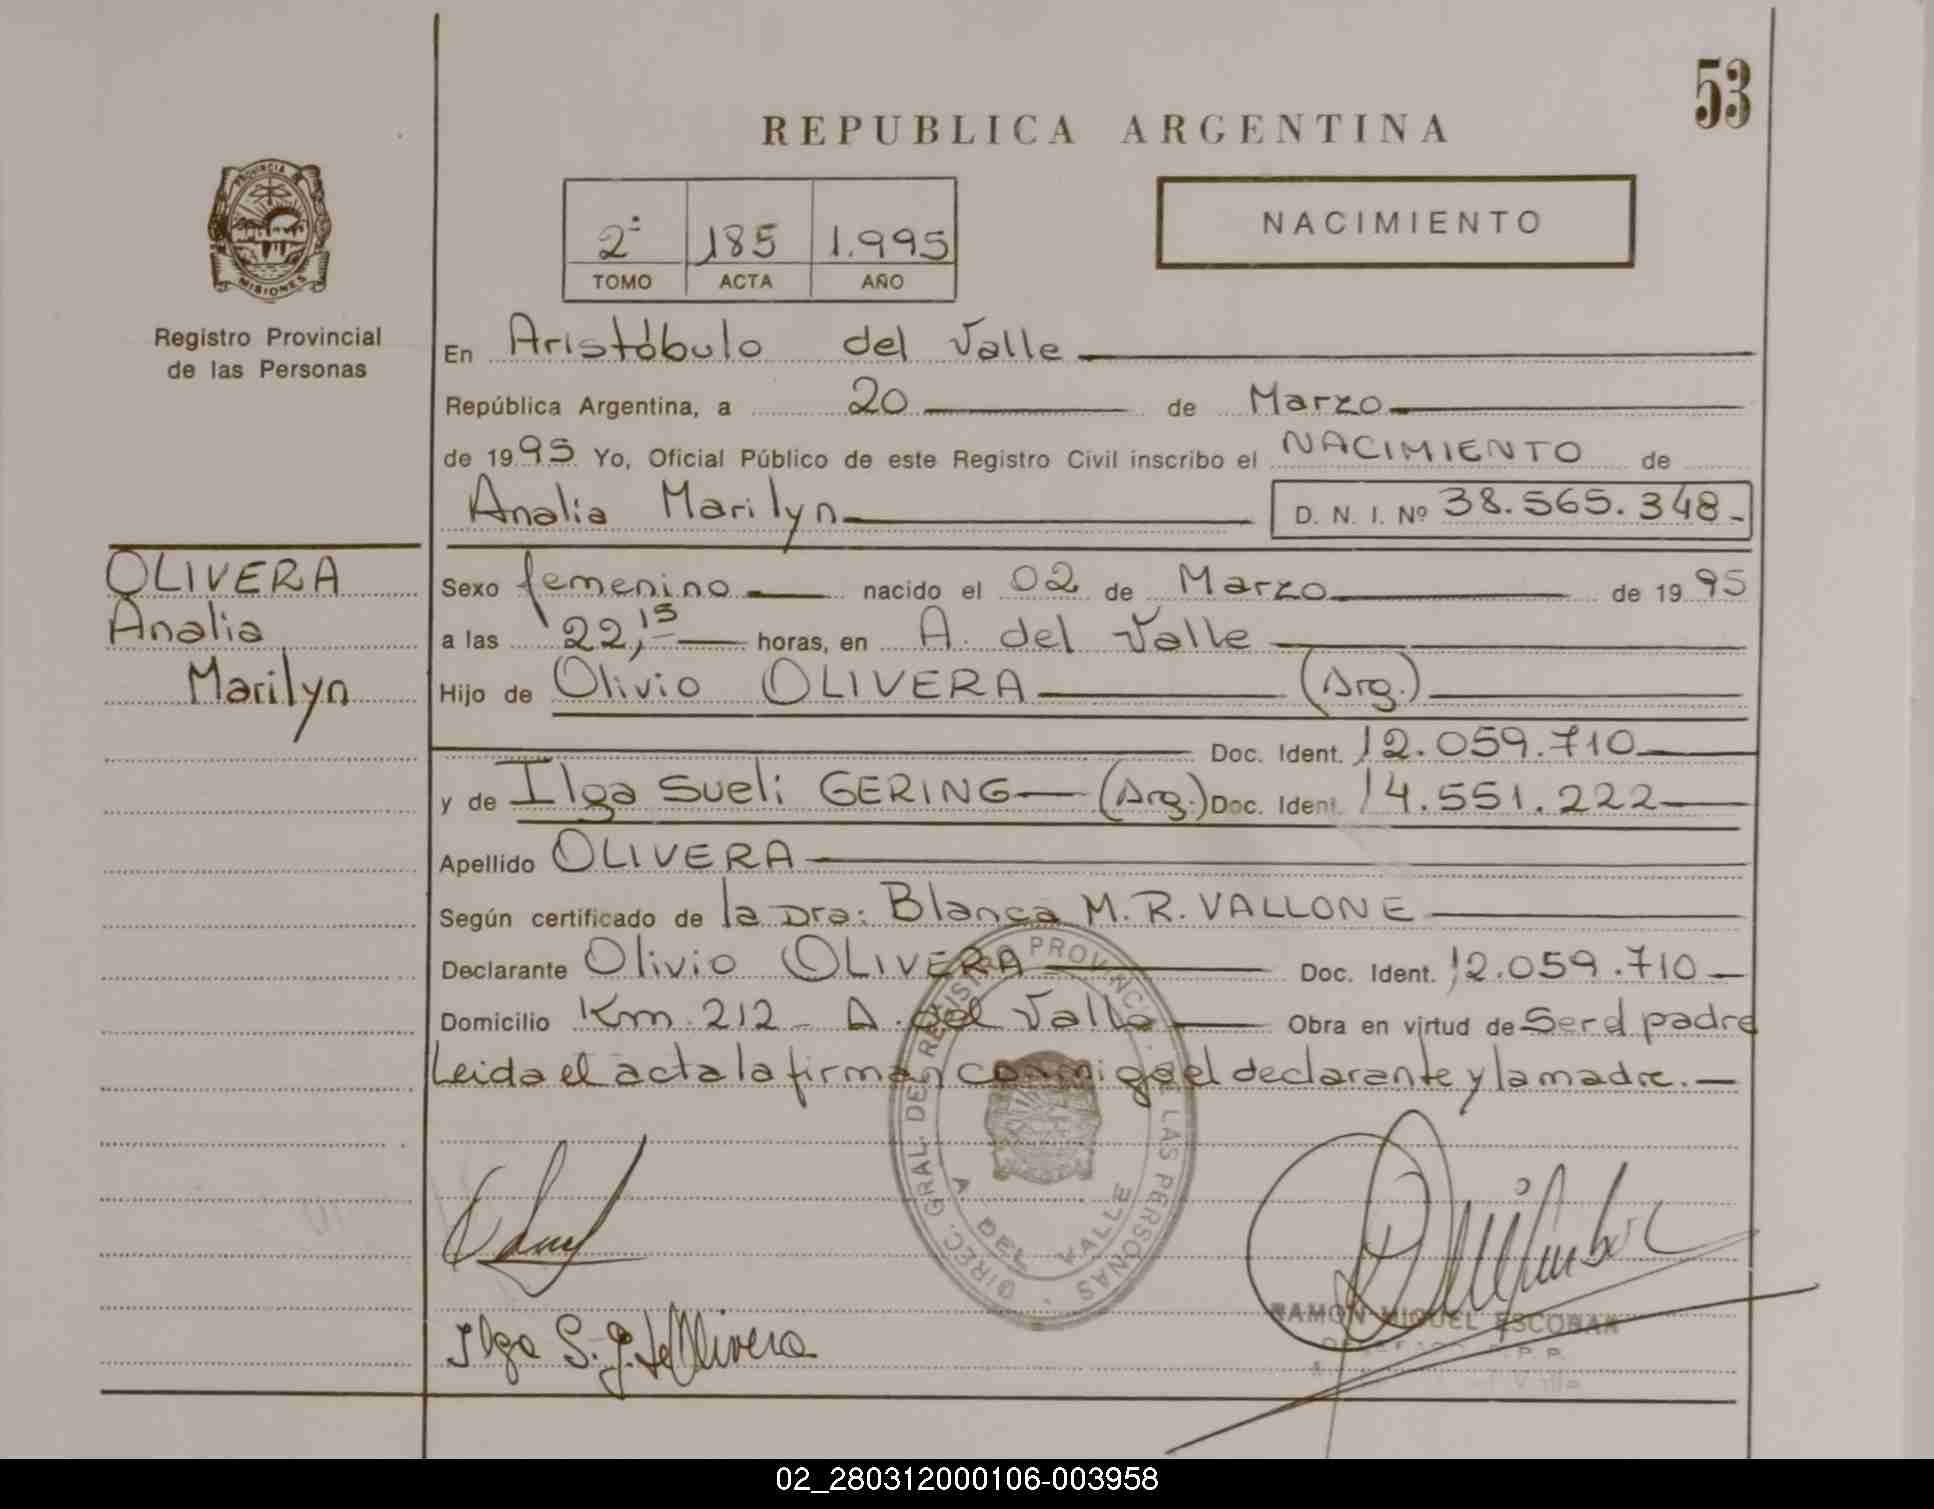 53
REPUBLICA ARGENTINA
PROVINCIA
MISIONES
Registro Provincial
de las Personas
2º 185 1.995
TOMO ACTA AÑO
NACIMIENTO
En Aristóbulo del Valle
República Argentina, a 20 de Marzo
de 1995 Yo, Oficial Público de este Registro Civil inscribo el NACIMIENTO de
Analia Marilyn D. N. I. Nº 38.565.348-
OLIVERA
Analia
Marilyn
Sexo femenino nacido el 02 de Marzo de 1995
a las 22,15 horas, en A. del Valle
Hijo de Olivio OLIVERA (Arg.)
Doc. Ident. 12.059.710
y de Ilga Sueli GERING (Arg.) Doc. Ident. 14.551.222
Apellido OLIVERA
Según certificado de la Dra: Blanca M. R. VALLONE
Declarante Olivio OLIVERA Doc. Ident. 12.059.710
Domicilio Km 212 - A. del Valle Obra en virtud de Ser el padre
Leida el acta la firman conmigo el declarante y la madre.
DIREC. GRAL. DEL REGISTRO PROVINC. DE LAS PERSONAS
A. DEL VALLE
Ilga S. g. de Olivera
RAMON MIGUEL ESCOBAR
02_280312000106-003958